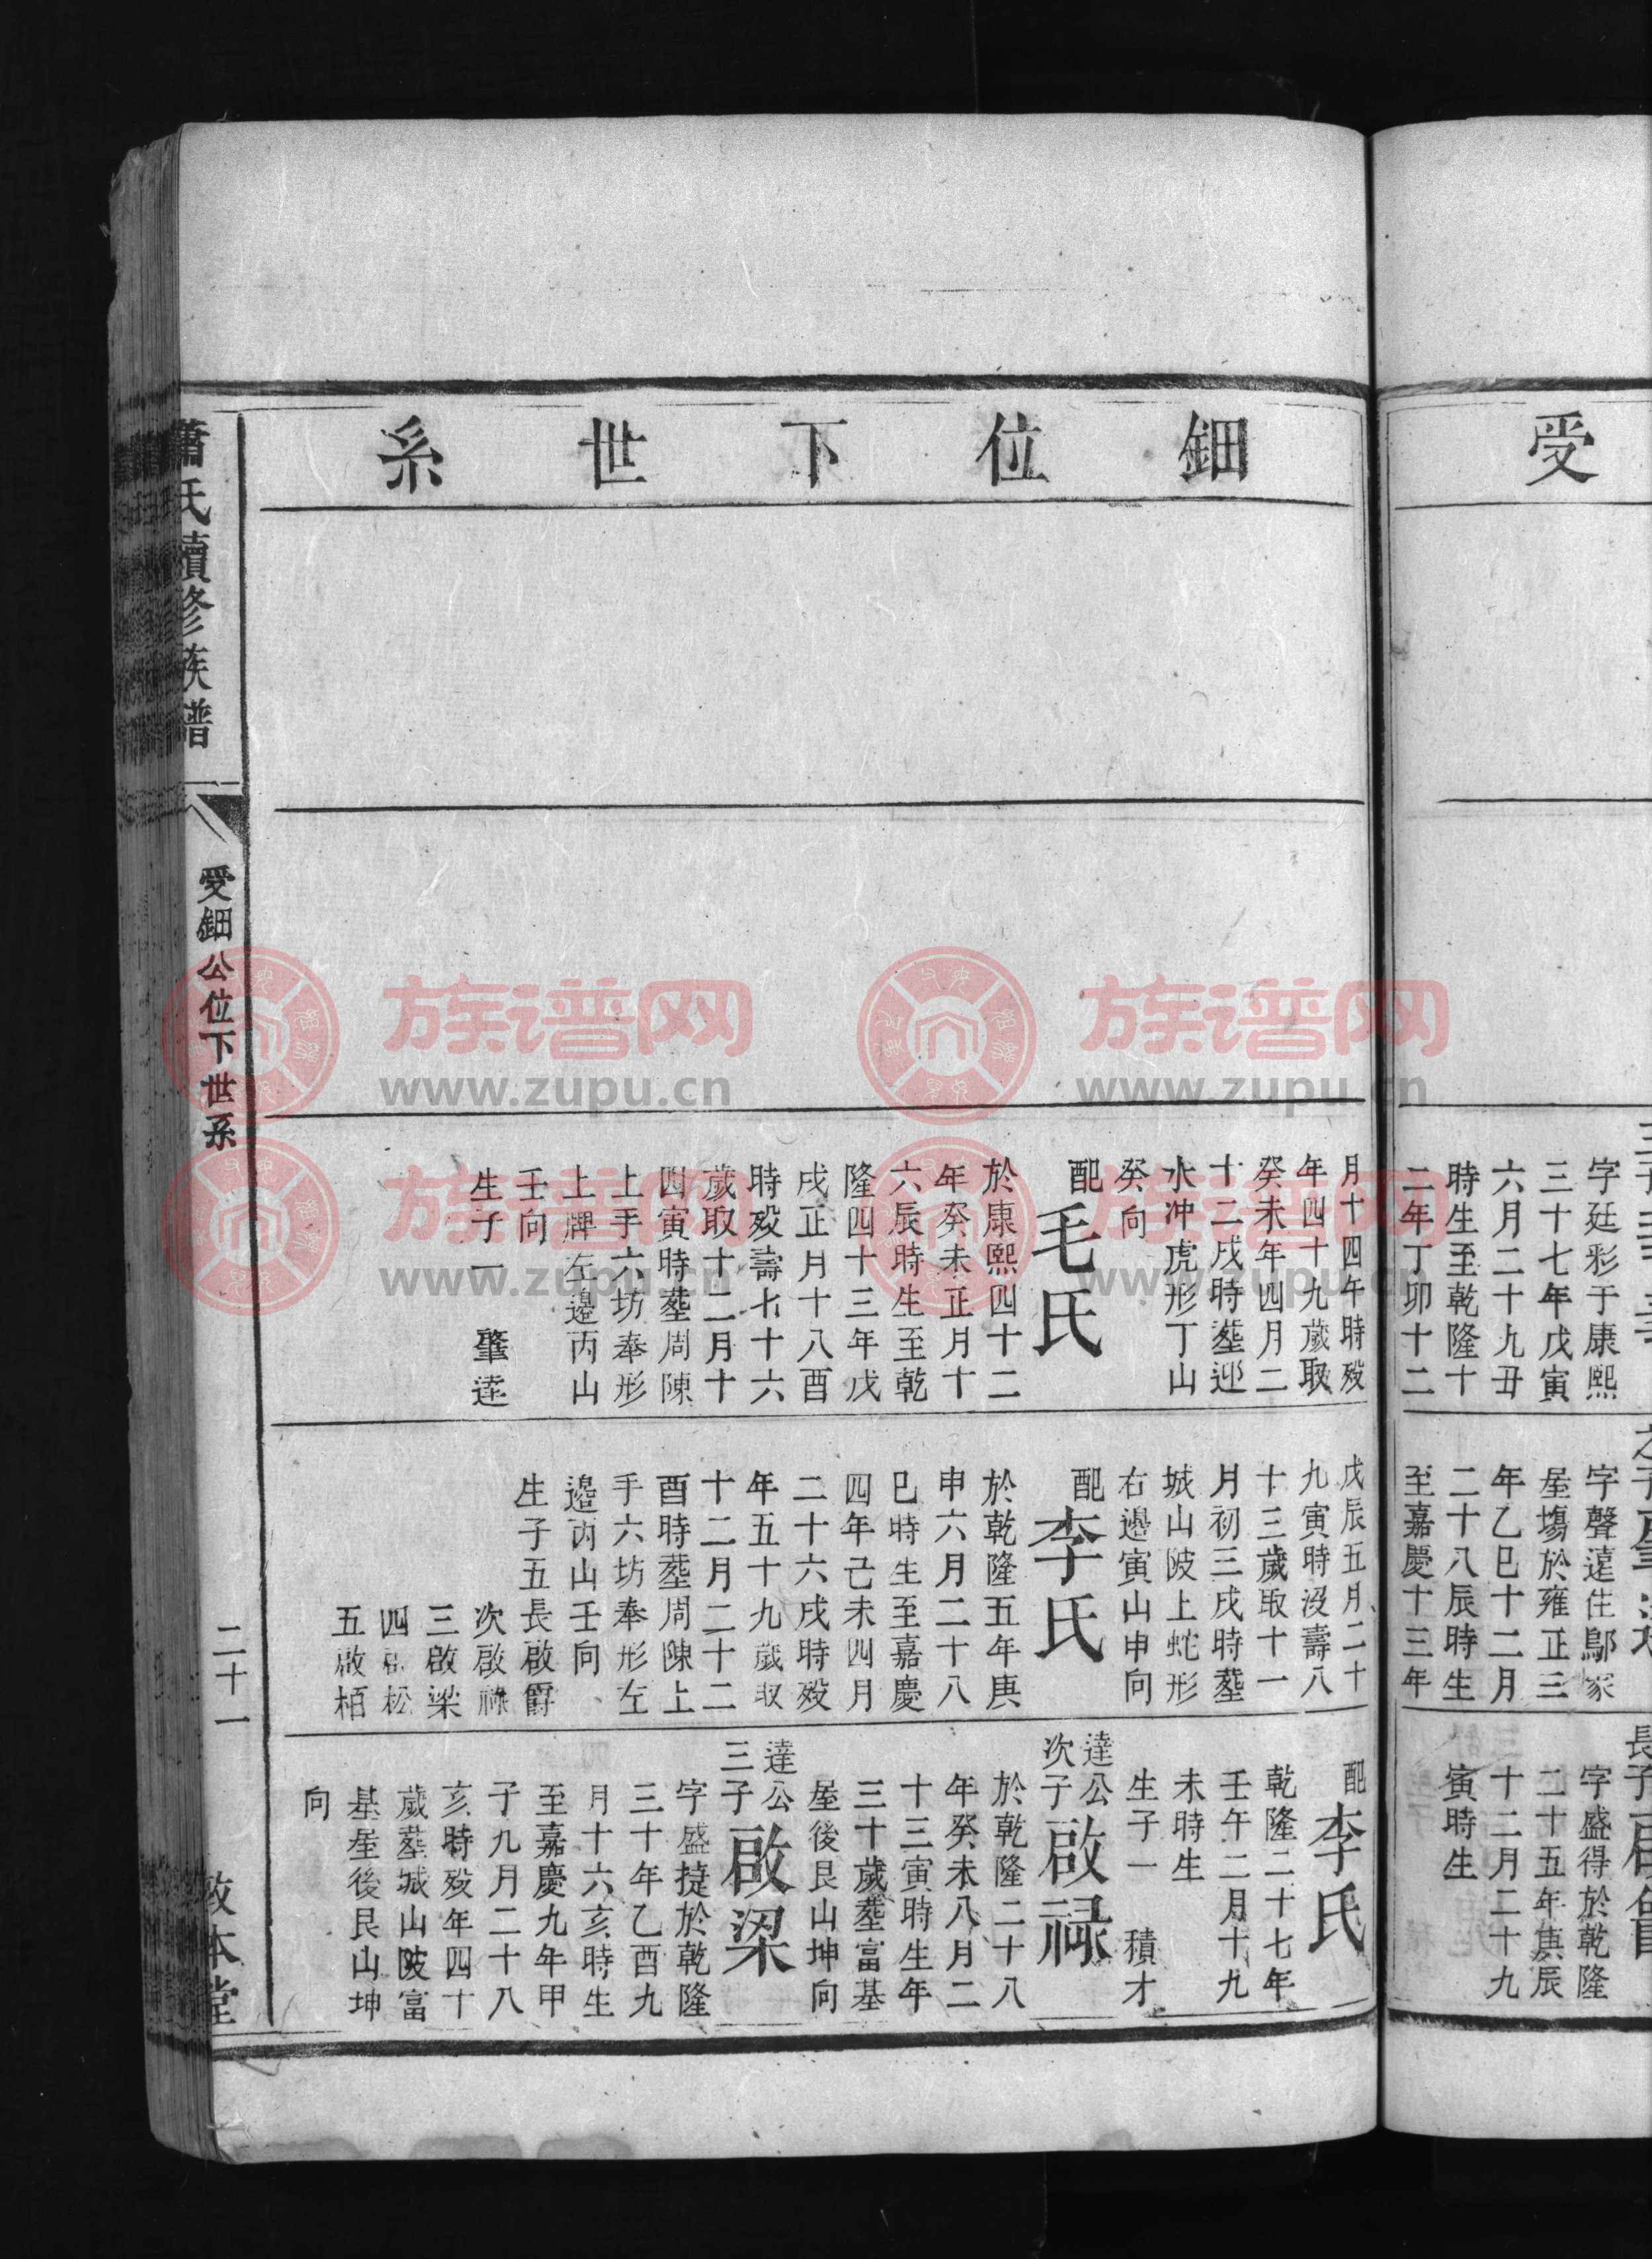 受
鈿位下世系
字廷彩于康熙
三十七年戊寅
六月二十九丑
時生至乾隆十
二年丁卯十二
月十四午時殁
年四十九歲取
癸未年四月二
十二戌時塟迎
水冲虎形丁山
癸向
配毛氏
於康熙四十二
年癸未正月十
六辰時生至乾
隆四十三年戊
戌正月十八酉
時殁壽七十六
歲取十二月十
四寅時塟周陳
上手六坊奉形
上牌左邉丙山
壬向
生子一 肇達
字聲遠住鄔家
屋塲於雍正三
年乙巳十二月
二十八辰時生
至嘉慶十三年
戊辰五月二十
九寅時沒壽八
十三歲取十一
月初三戌時塟
城山陂上蛇形
右邉寅山申向
配李氏
於乾隆五年庚
申六月二十八
巳時生至嘉慶
四年己未四月
二十六戌時殁
年五十九歲取
十二月二十二
酉時塟周陳上
手六坊奉形左
邉丙山壬向
生子五長啟爵
次啟祿
三啟梁
四啟松
五啟栢
字盛得於乾隆
二十五年庚辰
十二月二十九
寅時生
配李氏
乾隆二十七年
壬午二月十九
未時生
生子一 積才
達公次子啟禄
於乾隆二十八
年癸未八月二
十三寅時生年
三十歲塟富基
屋後艮山坤向
達公三子啟梁
字盛㨗於乾隆
三十年乙酉九
月十六亥時生
至嘉慶九年甲
子九月二十八
亥時殁年四十
歲塟城山陂富
基屋後艮山坤
向
蕭氏續修族譜
受鈿公位下世系
二十一
敦本堂
族谱网
www.zupu.cn
族谱网
www.zupu.cn
族谱网
www.zupu.cn
族谱网
www.zupu.cn